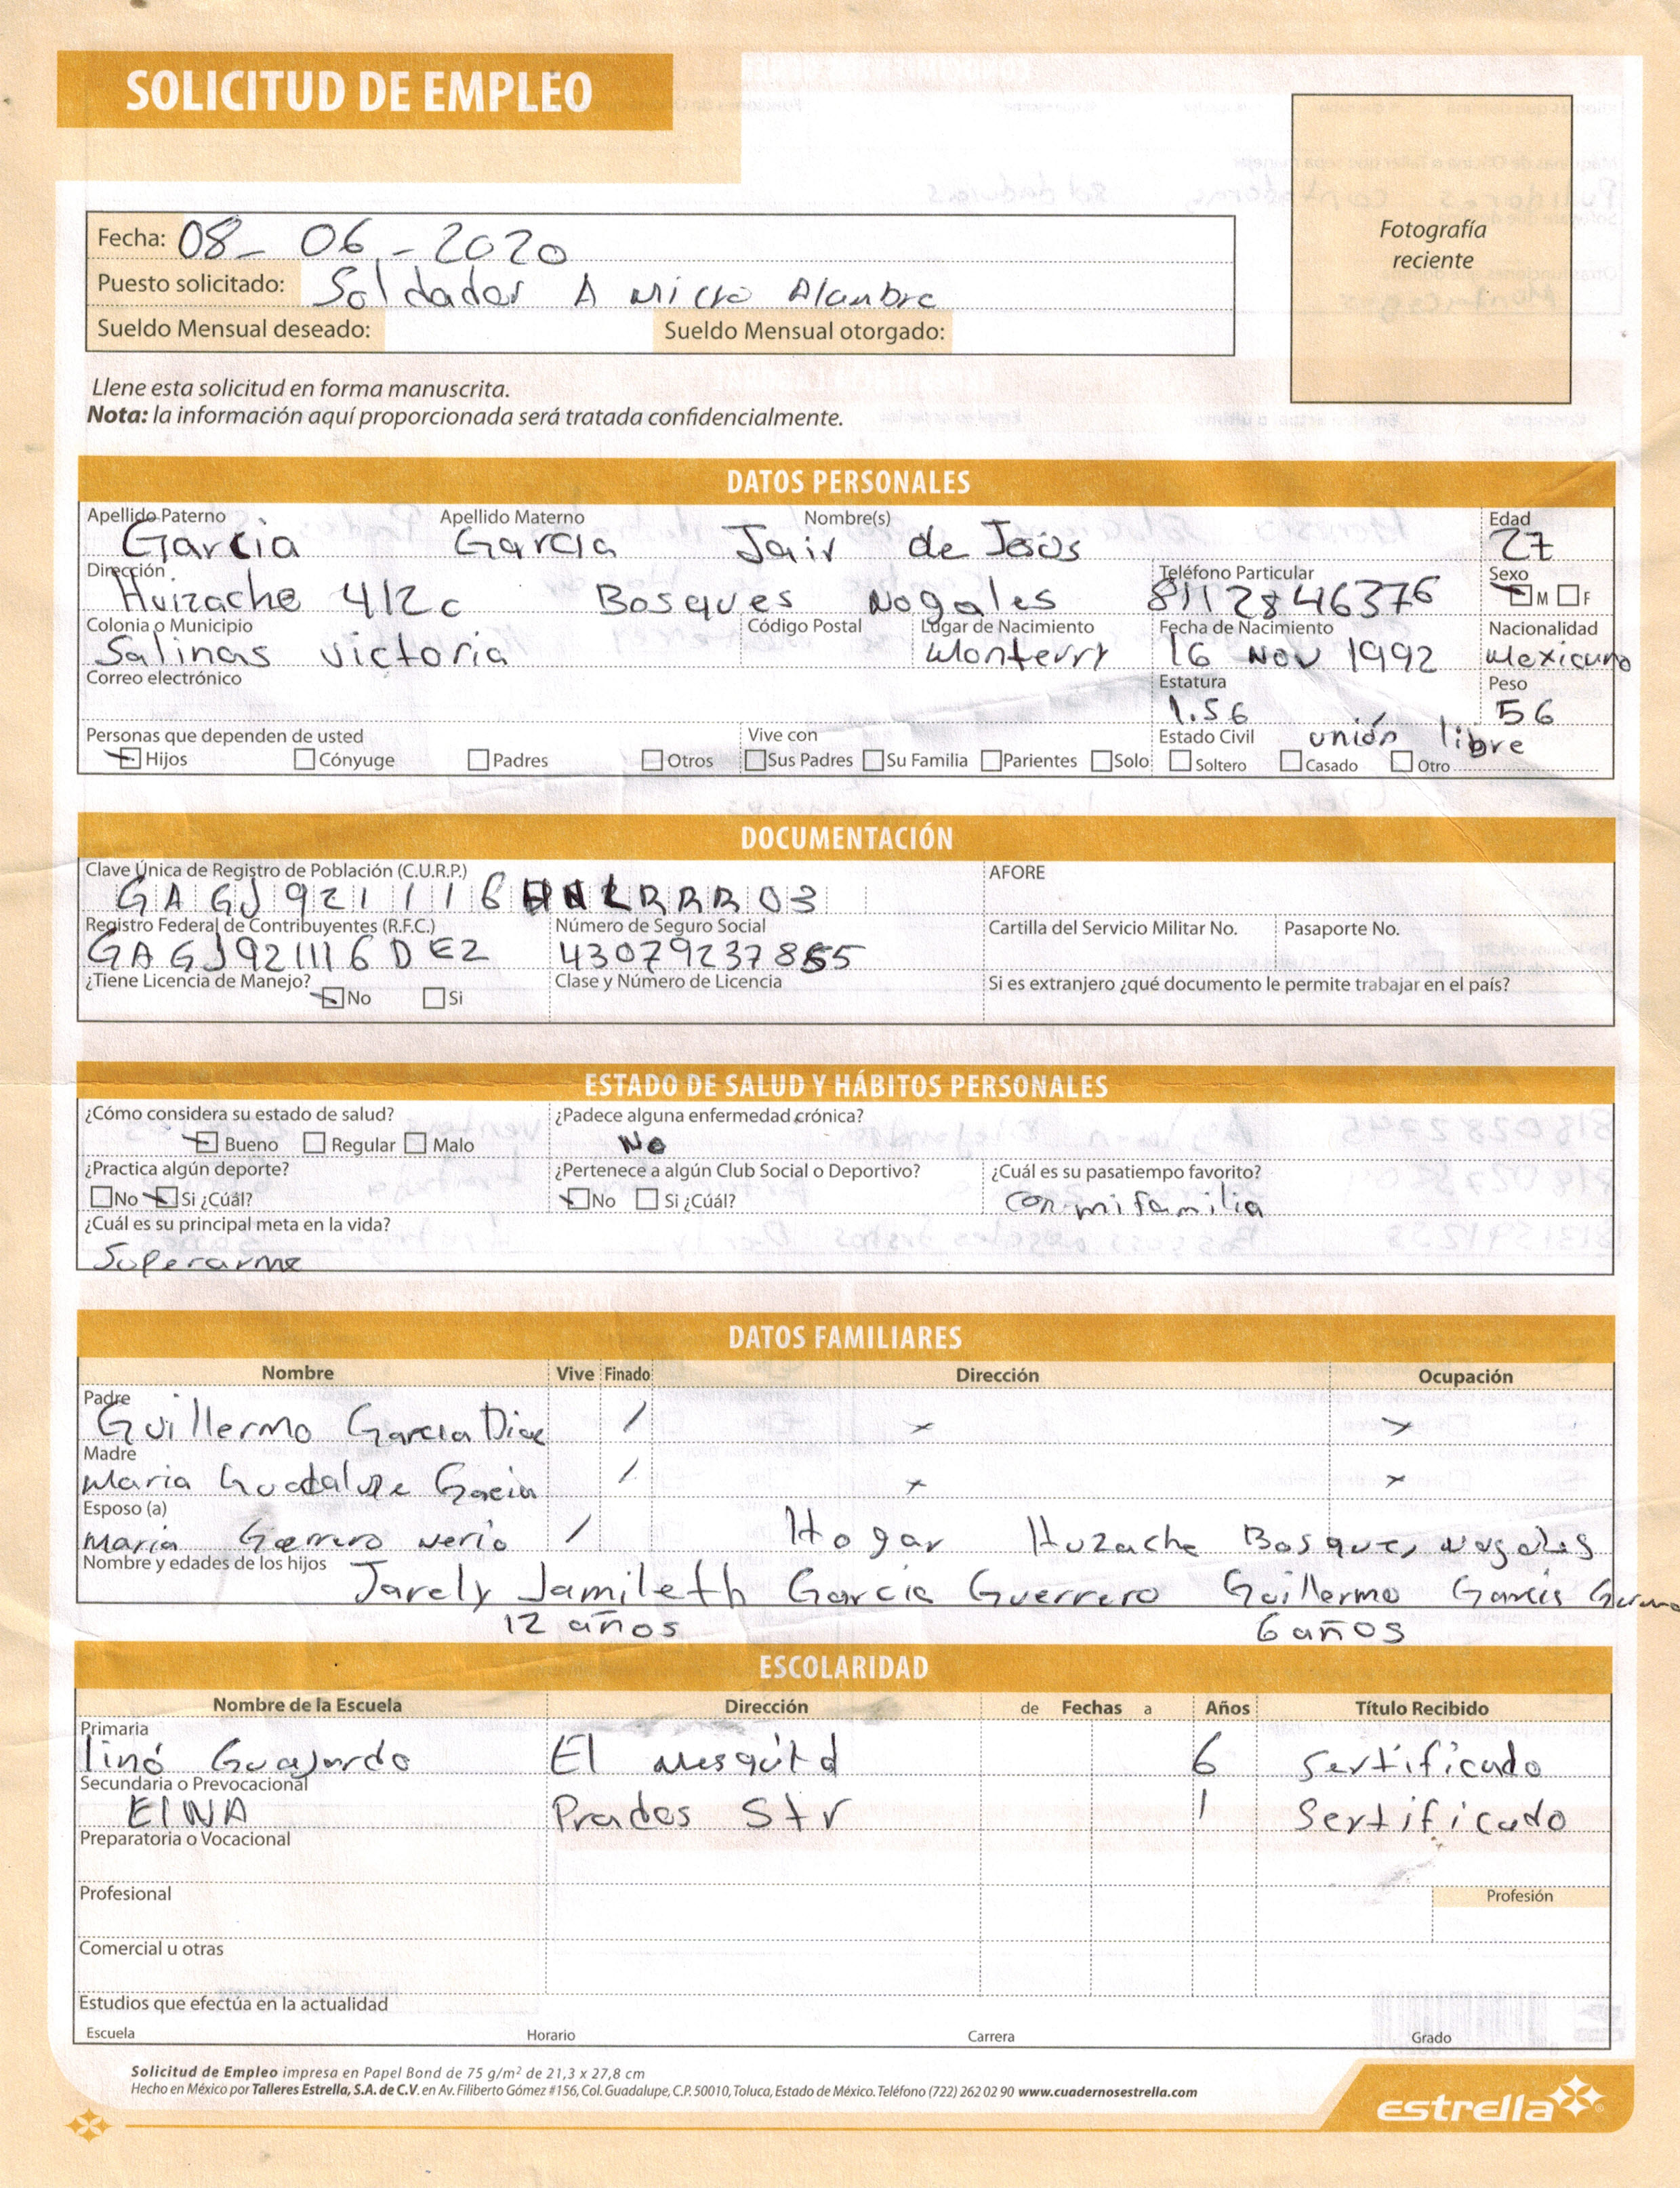 SOLICITUD DE EMPLEO
Fotografía
reciente
Fecha: 08 - 06 - 2020
Puesto solicitado: Soldador A Micro Alambre
Sueldo Mensual deseado: Sueldo Mensual otorgado:
Llene esta solicitud en forma manuscrita.
Nota: la información aquí proporcionada será tratada confidencialmente.
DATOS PERSONALES
Apellido Paterno Apellido Materno Nombre(s) Edad
Garcia Garcia Jair de Jesús 27
Dirección Teléfono Particular Sexo
Huizache 412c Bosques Nogales 8112846376 M F
Colonia o Municipio Código Postal Lugar de Nacimiento Fecha de Nacimiento Nacionalidad
Salinas victoria Monterry 16 Nov 1992 Mexicano
Correo electrónico Estatura Peso
1.56 56
Personas que dependen de usted Vive con Estado Civil unión libre
Hijos Cónyuge Padres Otros Sus Padres Su Familia Parientes Solo Soltero Casado Otro
DOCUMENTACIÓN
Clave Única de Registro de Población (C.U.R.P.) AFORE
GAGJ921116HNLRRR03
Registro Federal de Contribuyentes (R.F.C.) Número de Seguro Social Cartilla del Servicio Militar No. Pasaporte No.
GAGJ921116DE2 43079237855
¿Tiene Licencia de Manejo? No Si Clase y Número de Licencia Si es extranjero ¿qué documento le permite trabajar en el país?
ESTADO DE SALUD Y HÁBITOS PERSONALES
¿Cómo considera su estado de salud? ¿Padece alguna enfermedad crónica?
Bueno Regular Malo No
¿Practica algún deporte? ¿Pertenece a algún Club Social o Deportivo? ¿Cuál es su pasatiempo favorito?
No Si ¿Cúál? No Si ¿Cúál? con mi familia
¿Cuál es su principal meta en la vida?
Superarme
DATOS FAMILIARES
Nombre Vive Finado Dirección Ocupación
Padre
Guillermo Garcia Diaz / x x
Madre
Maria Guadalupe Garcia / x x
Esposo (a)
Maria Gerrero Nerio / Hogar Huzache Bosques Nogales
Nombre y edades de los hijos Jarely Jamileth Garcia Guerrero Guillermo Garcia
12 años 6 años
ESCOLARIDAD
Nombre de la Escuela Dirección de Fechas a Años Título Recibido
Primaria
Tino Guajardo El Mesquitd 6 Sertificado
Secundaria o Prevocacional
EINA Prados Str 1 Sertificado
Preparatoria o Vocacional
Profesional Profesión
Comercial u otras
Estudios que efectúa en la actualidad
Escuela Horario Carrera Grado
Solicitud de Empleo impresa en Papel Bond de 75 g/m² de 21,3 x 27,8 cm
Hecho en México por Talleres Estrella, S.A. de C.V. en Av. Filiberto Gómez #156, Col. Guadalupe, C.P. 50010, Toluca, Estado de México. Teléfono (722) 262 02 90 www.cuadernosestrella.com
estrella